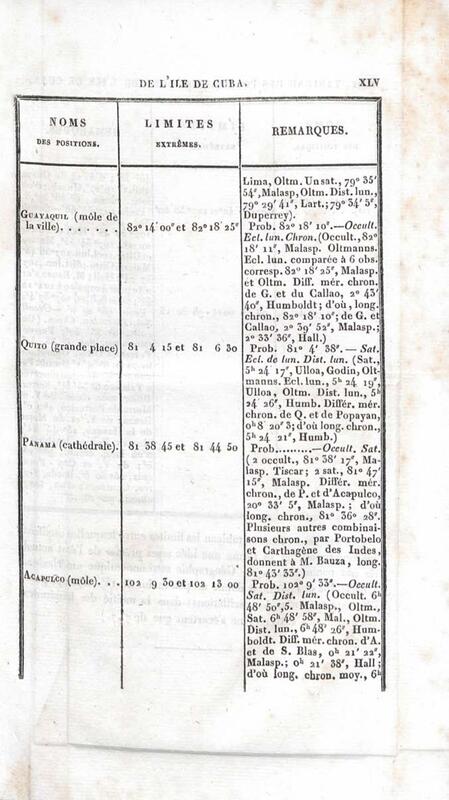 DE L'ILE DE CUBA. XLV
NOMS
DES POSITIONS.
LIMITES
EXTRÊMES.
REMARQUES.
Lima, Oltm. Un sat., 79° 35'
54", Malasp, Oltm. Dist. lun.,
79° 29' 41", Lart.; 79° 34' 5",
Duperrey).
GUAYAQUIL (môle de
la ville). . . . . . . 82° 14' 00" et 82° 18' 25"
Prob. 82° 18' 10".—Occult.
Ecl. lun. Chron. (Occult., 82°
18' 11", Malasp. Oltmanns.
Ecl. lun. comparée à 6 obs.
corresp. 82° 18' 25", Malasp.
et Oltm. Diff. mér. chron.
de G. et du Callao, 2° 43'
40", Humboldt; d'où, long.
chron., 82° 18' 10"; de G. et
Callao, 2° 39' 52", Malasp.;
2° 33' 36", Hall.)
QUITO (grande place) 81 4 15 et 81 6 30
Prob. 81° 4' 38".— Sat.
Ecl. de lun. Dist. lun. (Sat.,
5h 24' 17", Ulloa, Godin, Olt-
manns. Ecl. lun., 5h 24' 19",
Ulloa, Oltm. Dist. lun., 5h
24' 26", Humb. Différ. mér.
chron. de Q. et de Popayan,
0h 8' 20" 3; d'où long. chron.,
5h 24' 21", Humb.)
PANAMA (cathédrale). 81 38 45 et 81 44 50
Prob..........—Occult. Sat.
(2 occult., 81° 38' 17", Ma-
lasp. Tiscar; 2 sat., 81° 47'
15", Malasp. Différ. mér.
chron., de P. et d'Acapulco,
20° 33' 5", Malasp.; d'où
long. chron., 81° 36' 28".
Plusieurs autres combinai-
sons chron., par Portobelo
et Carthagène des Indes,
donnent à M. Bauza, long.
81° 43' 33".)
ACAPULCO (môle). . . 102 9 30 et 102 13 00
Prob. 102° 9' 33".—Occult.
Sat. Dist. lun. (Occult. 6h
48' 50",5. Malasp., Oltm.,
Sat. 6h 48' 58", Mal., Oltm.
Dist. lun., 6h 48' 26", Hum-
boldt. Diff. mér. chron. d'A.
et de S. Blas, 0h 21' 22",
Malasp.; 0h 21' 38", Hall;
d'où long. chron. moy., 6h